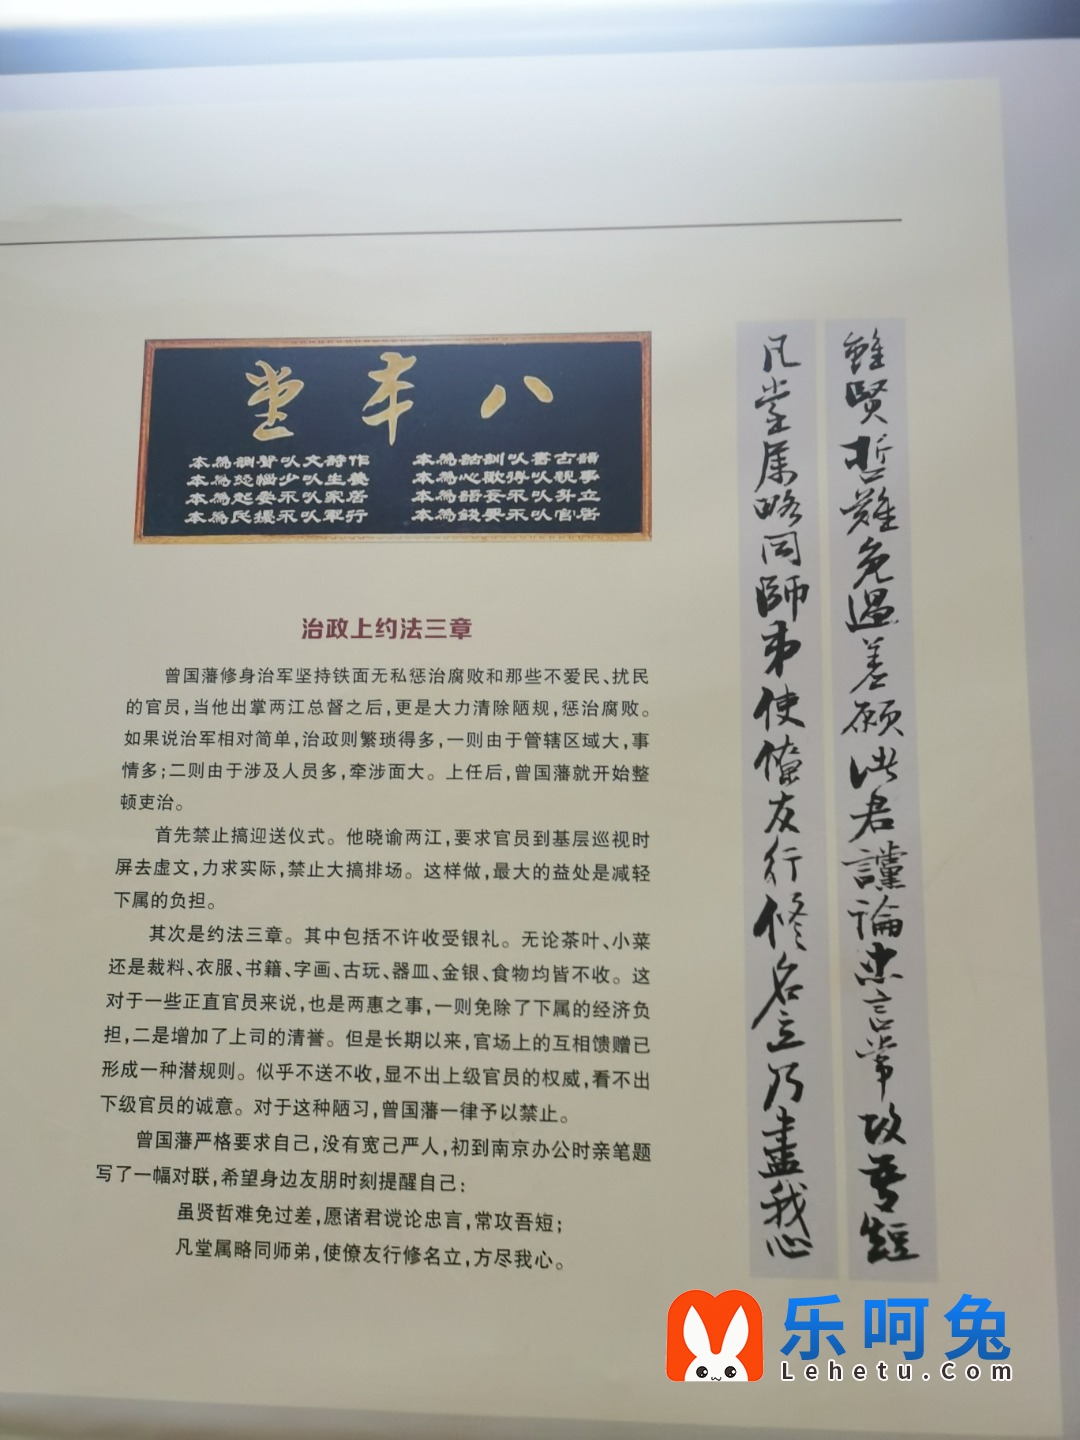 八本堂
讀古書以訓詁為本
事親以得歡心為本
立身以不妄語為本
居官以不要錢為本
作詩文以聲調為本
養生以少惱怒為本
居家以不晏起為本
行軍以不擾民為本
雖賢哲難免過差願諸君讜論忠言常攻吾短
凡堂属略同師弟使僚友行修名立乃盡我心
治政上约法三章
曾国藩修身治军坚持铁面无私惩治腐败和那些不爱民、扰民
的官员,当他出掌两江总督之后,更是大力清除陋规,惩治腐败。
如果说治军相对简单,治政则繁琐得多,一则由于管辖区域大,事
情多;二则由于涉及人员多,牵涉面大。上任后,曾国藩就开始整
顿吏治。
首先禁止搞迎送仪式。他晓谕两江,要求官员到基层巡视时
屏去虚文,力求实际,禁止大搞排场。这样做,最大的益处是减轻
下属的负担。
其次是约法三章。其中包括不许收受银礼。无论茶叶、小菜
还是裁料、衣服、书籍、字画、古玩、器皿、金银、食物均皆不收。这
对于一些正直官员来说,也是两惠之事,一则免除了下属的经济负
担,二是增加了上司的清誉。但是长期以来,官场上的互相馈赠已
形成一种潜规则。似乎不送不收,显不出上级官员的权威,看不出
下级官员的诚意。对于这种陋习,曾国藩一律予以禁止。
曾国藩严格要求自己,没有宽己严人,初到南京办公时亲笔题
写了一幅对联,希望身边友朋时刻提醒自己:
虽贤哲难免过差,愿诸君谠论忠言,常攻吾短;
凡堂属略同师弟,使僚友行修名立,方尽我心。
乐呵兔
Lehetu.Com